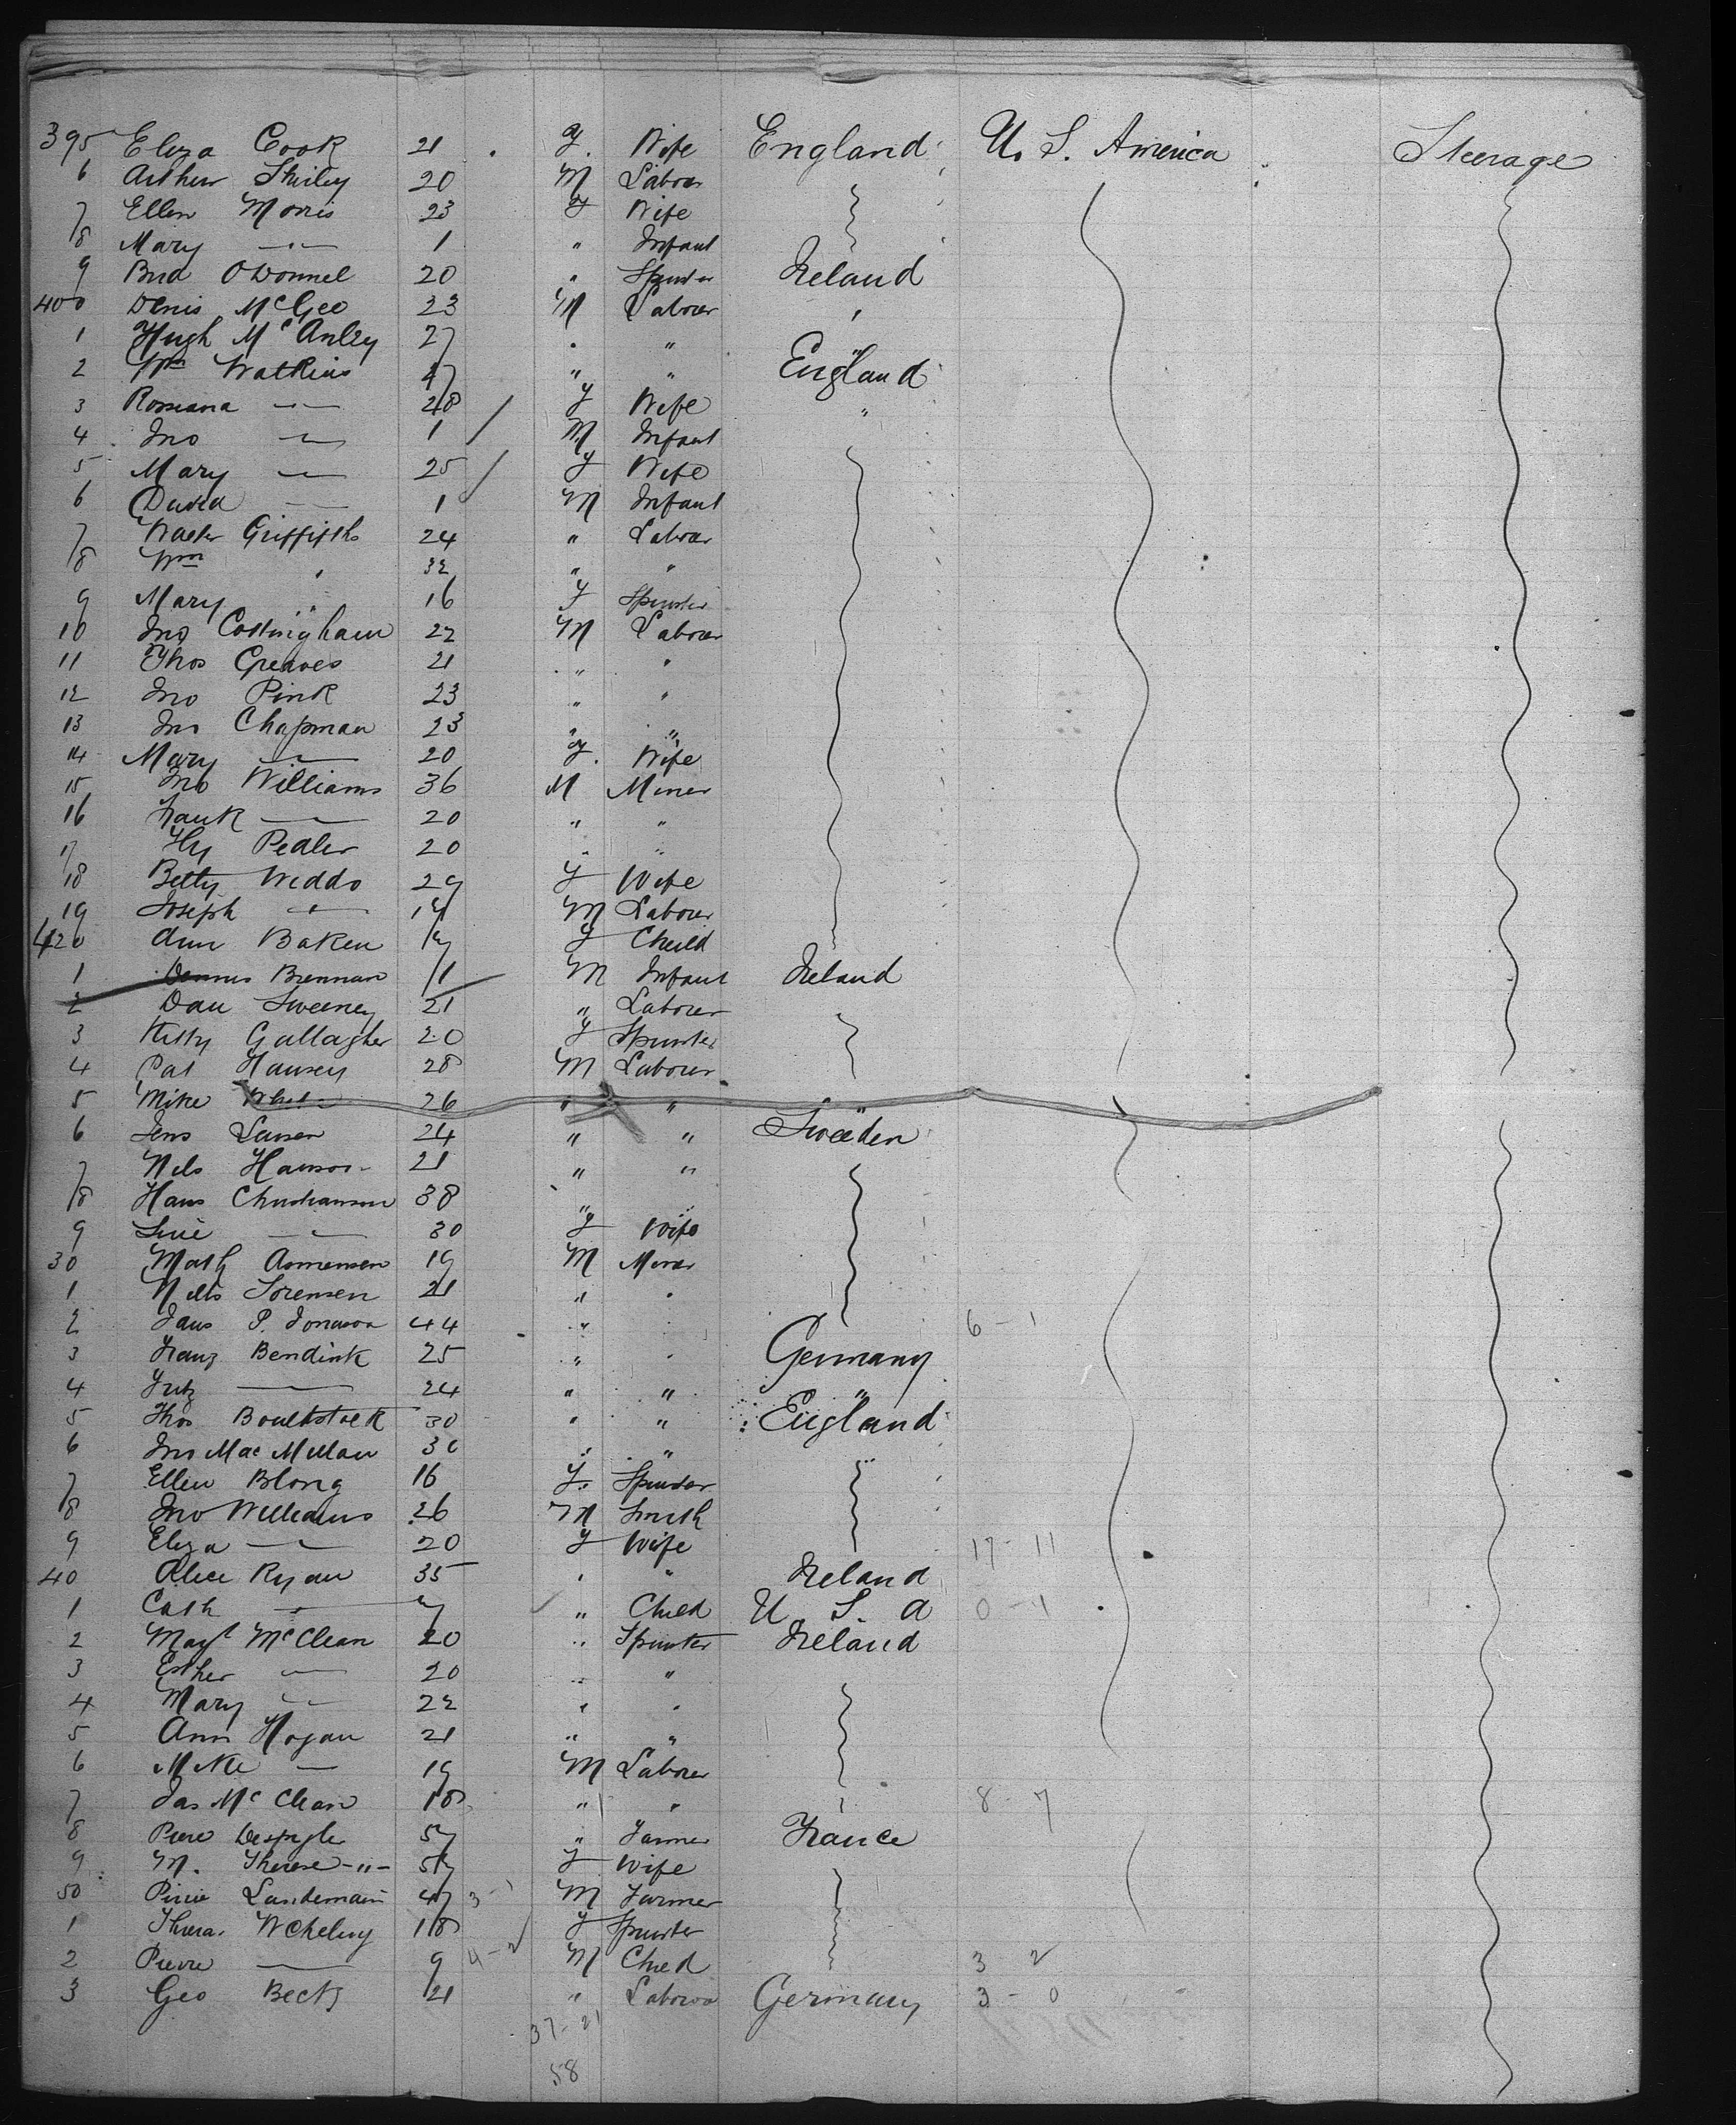 395 Eliza Cook 21 F. Wife England U. S. America Steerage
6 Arthur Shirley 20 M Labour
7 Ellen Morris 23 F Wife
8 Mary —"— 1 " Infant
9 Brid O'Donnel 20 " Spinster Ireland
400 Denis McGeo 23 M Labour "
1 Hugh McAnley 27 " " "
2 Wm Watkins 47 " " England
3 Rosseana —"— 28 / F Wife "
4 Jno —"— 1 / M Infant
5 Mary —"— 25 / F Wife
6 David —"— 1 M Infant
7 Walter Griffiths 24 " Labour
8 Wm " 32 " "
9 Mary " 16 F Spinster
10 Jno Cottingham 22 M Labour
11 Thos Greaves 21 " "
12 Jno Pink 23 " "
13 Jno Chapman 23 " "
14 Mary —"— 20 F. Wife
15 Jno Williams 36 M Miner
16 Frank —"— 20 " "
17 Hy Pedler 20 " "
18 Betty Widdo 29 F Wife
19 Joseph —"— 19 M Labour
420 Ann Baken F Child
1 Dennis Brennan 11 M Infant Ireland
2 Dan Sweeney 21 " Labour
3 Kitty Gallagher 20 F Spinster
4 Pat Hausey 28 M Labour
5 Mike White 26 " " "
6 Jens Larsen 24 " " Sweeden
7 Nels Hanson 21 " "
8 Hans Christiansen 38 " "
9 Sine —"— 30 F Wife
30 Math Asmensen 19 M Miner
1 Nells Sorensen 21 " "
2 Jans P. Jonason 44 " " 6 - 1
3 Franz Bendink 25 " " Germany
4 Fritz — 24 " " "
5 Thos Boultstock 30 " " England
6 Jno MacMillan 30 " " "
7 Ellen Blong 16 F. Spinster
8 Jno Williams 26 M Smith
9 Eliza —"— 20 F Wife 17 - 11
40 Alice Ryan 35 " " Ireland
1 Cath —"— " Child U. S. A 0 - 1
2 Magt McClean 20 " Spinster Ireland
3 Esther —"— 20 " "
4 Mary —"— 22 " "
5 Ann Hogan 21 " "
6 Mike — 19 M Labour
7 Jas McClean 18 " " 8 - 7
8 Piere 57 " Farmer France
9 M. Therese —"— 57 F Wife
50 Pierre Landemain 47 3 - 1 M Farmer
1 18 F Spinster
2 Pierre — 9 4 - 2 M Child 3 2
3 Geo Beck 21 " Labour Germany 3 - 0
37 - 21
58